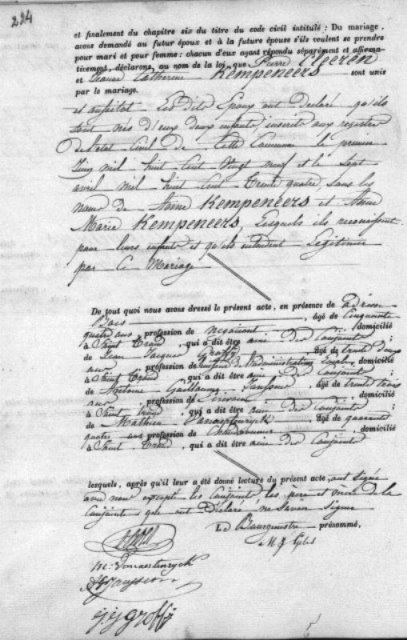 224
et finalement du chapitre six du titre du code civil intitulé: Du mariage,
avons demandé au futur époux et à la future épouse s'ils veulent se prendre
pour mari et pour femme: chacun d'eux ayant répondu séparément et affirma-
tivement, déclarons, au nom de la loi, que Pierre Elperen
et Jeanne Catherine Kempeneers sont unis
par le mariage.
et aussitot les dits Epoux ont déclaré qu'ils
sont nés d'eux deux enfants inscrits aux registres
de l'etat Civil de cette Commune le premier
Juin mil huit cent vingt neuf et le sept
avril mil huit cent trente quatre sous les
noms de Kempeneers et Anne
Marie Kempeneers, lesquels ils reconnaissent
pour leurs enfants et qu'ils entendent Légitimer
par ce Mariage
De tout quoi nous avons dressé le présent acte, en présence de
âgé de cinquante
quatre ans, profession de négociant, domicilié
à Saint Trond, qui a dit être ami des Conjoints
de Jean Jacques âgé de trente deux
ans, profession de domicilié
à Saint Trond, qui a dit être ami des Conjoints
de Guillaume âgé de trente trois
ans, profession de domicilié
à Saint Trond, qui a dit être ami des Conjoints
de Mathieu Vanaertenryck âgé de quarante
quatre ans profession de domicilié
à Saint Trond, qui a dit être ami des Conjoints
lesquels, après qu'il leur a été donné lecture du présent acte, ont signé
avec nous excepté les Conjoints les père et mère de la
Conjointe qui ont Déclaré ne savoir signer
Le Bourgmestre prénommé.